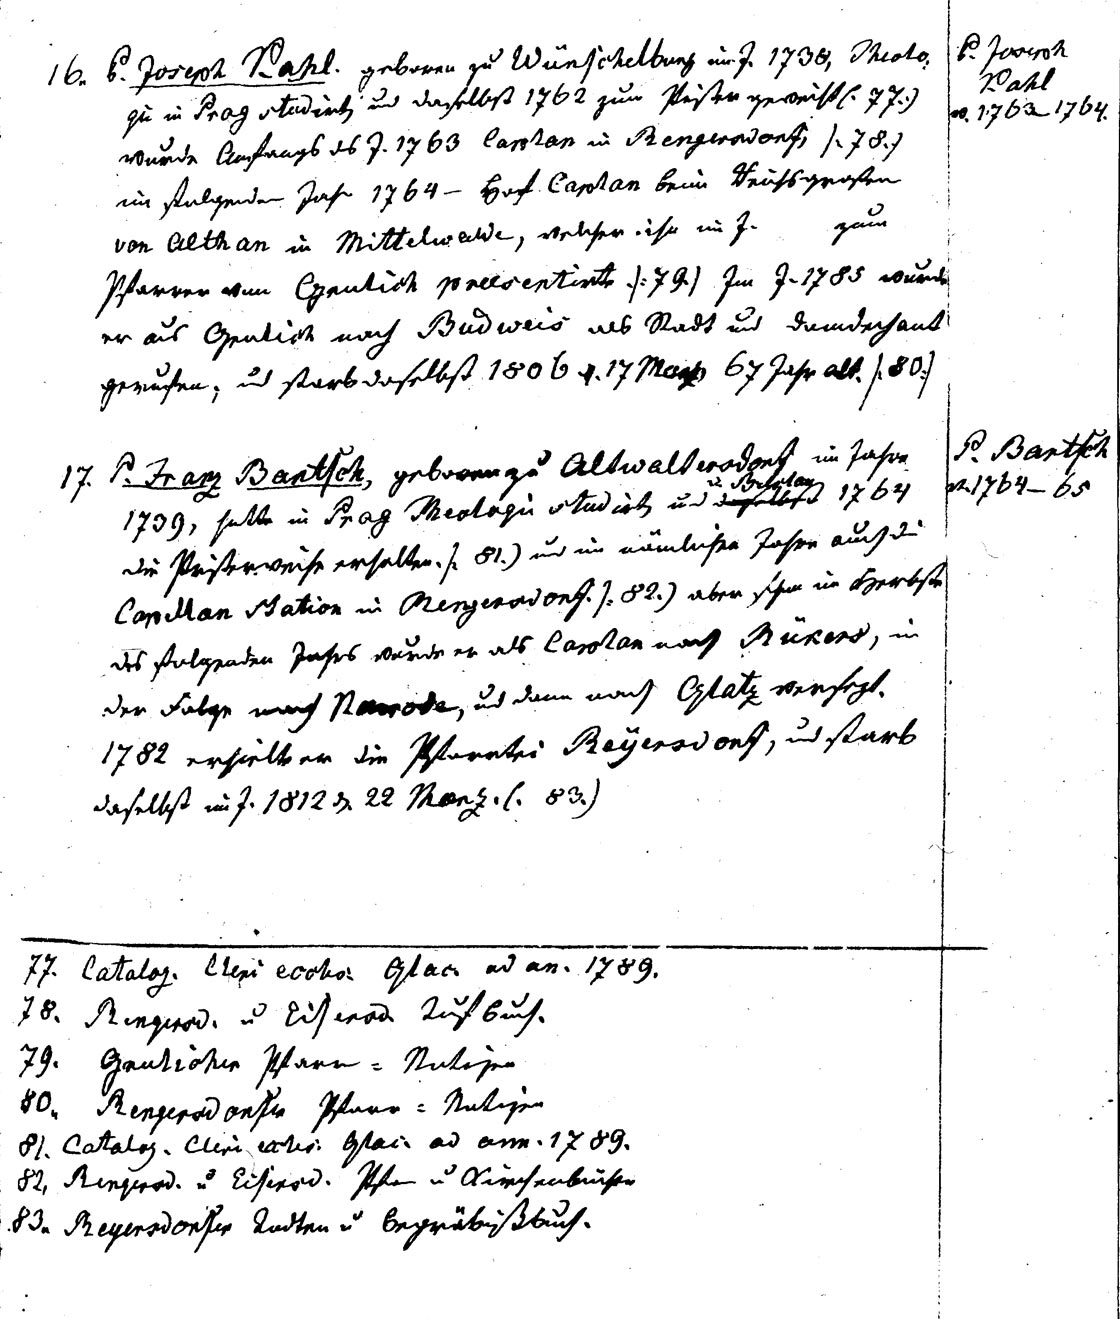 16. P. Joseph Kahl. geboren zu Wünschelburg im J. 1738, Theolo-
gie in Prag studirt, und daselbst 1762 zum Priester geweiht (: 77.:)
wurde Anfangs des J. 1763 Caplan in Rengersdorf, /: 78.:/
im folgenden Jahr 1764 – Hof Caplan beim Reichsgrafen
von Althan in Mittelwalde, welcher ihn im J. zum
Pfarrer von præsentirte /: 79:/ Im J. 1785 wurde
er aus nach Budweis als Stadt und Domdechant
gerufen, und starb daselbst 1806 d. 17 März 67 Jahr alt. /: 80:/
P. Joseph
Kahl
v. 1763–1764.
17. P. Franz Bartsch, geboren zu Altwaltersdorf im Jahre
1739, hatte in Prag Theologie studirt, und daselbst 1764
die Priesterweihe erhalten. /: 81.:) und im nämlichen Jahre auch die
Capellan Station in Rengersdorf. /: 82.) aber schon im Herbste
des folgenden Jahrs wurde er als Caplan nach Rükers, in
der Folge nach Neurode, und dann nach Glatz versezt.
1782 erhielt er die Pfarrtei Reÿersdorf, und starb
daselbst im J. 1812 d. 22 März. (: 83.)
P. Bartsch
v. 1764–65
77. Catalog. Cleri eccles. Glac. ad an. 1789.
78. Rengersd. u Eisersd. Taufbuch.
79. Pfarr = Notizen
80. Rengersdorfer Pfarr = Notizen
81. Catalog. Cleri eccles. Glac. ad ann. 1789.
82. Rengersd. u Eisersd. Pfarr u Kirchenbücher
83. Reyersdorfer Todten u Begräbnißbuch.